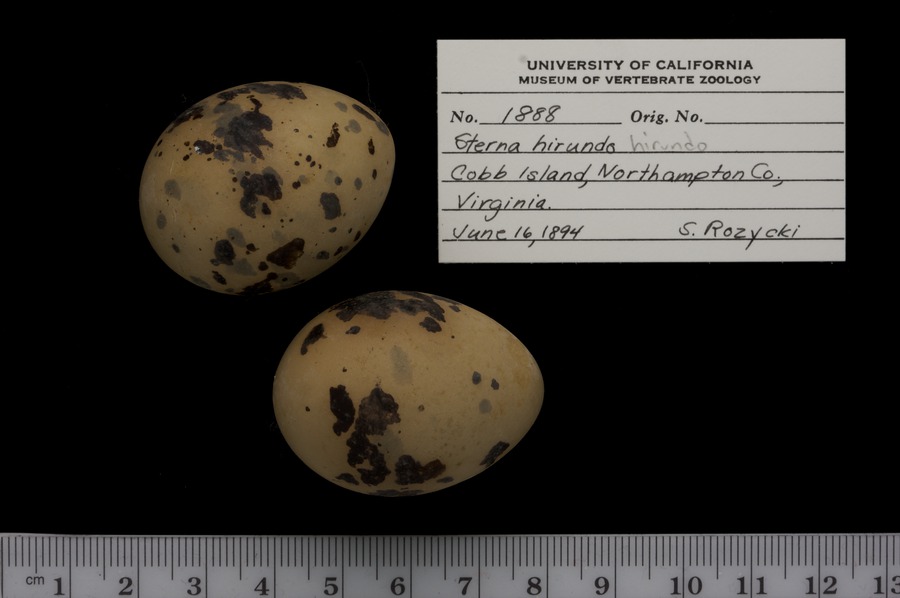 UNIVERSITY OF CALIFORNIA
MUSEUM OF VERTEBRATE ZOOLOGY
No. 1888 Orig. No.
Sterna hirundo hirundo
Cobb Island, Northampton Co.,
Virginia.
June 16, 1894 S. Rozycki
cm 1 2 3 4 5 6 7 8 9 10 11 12 13